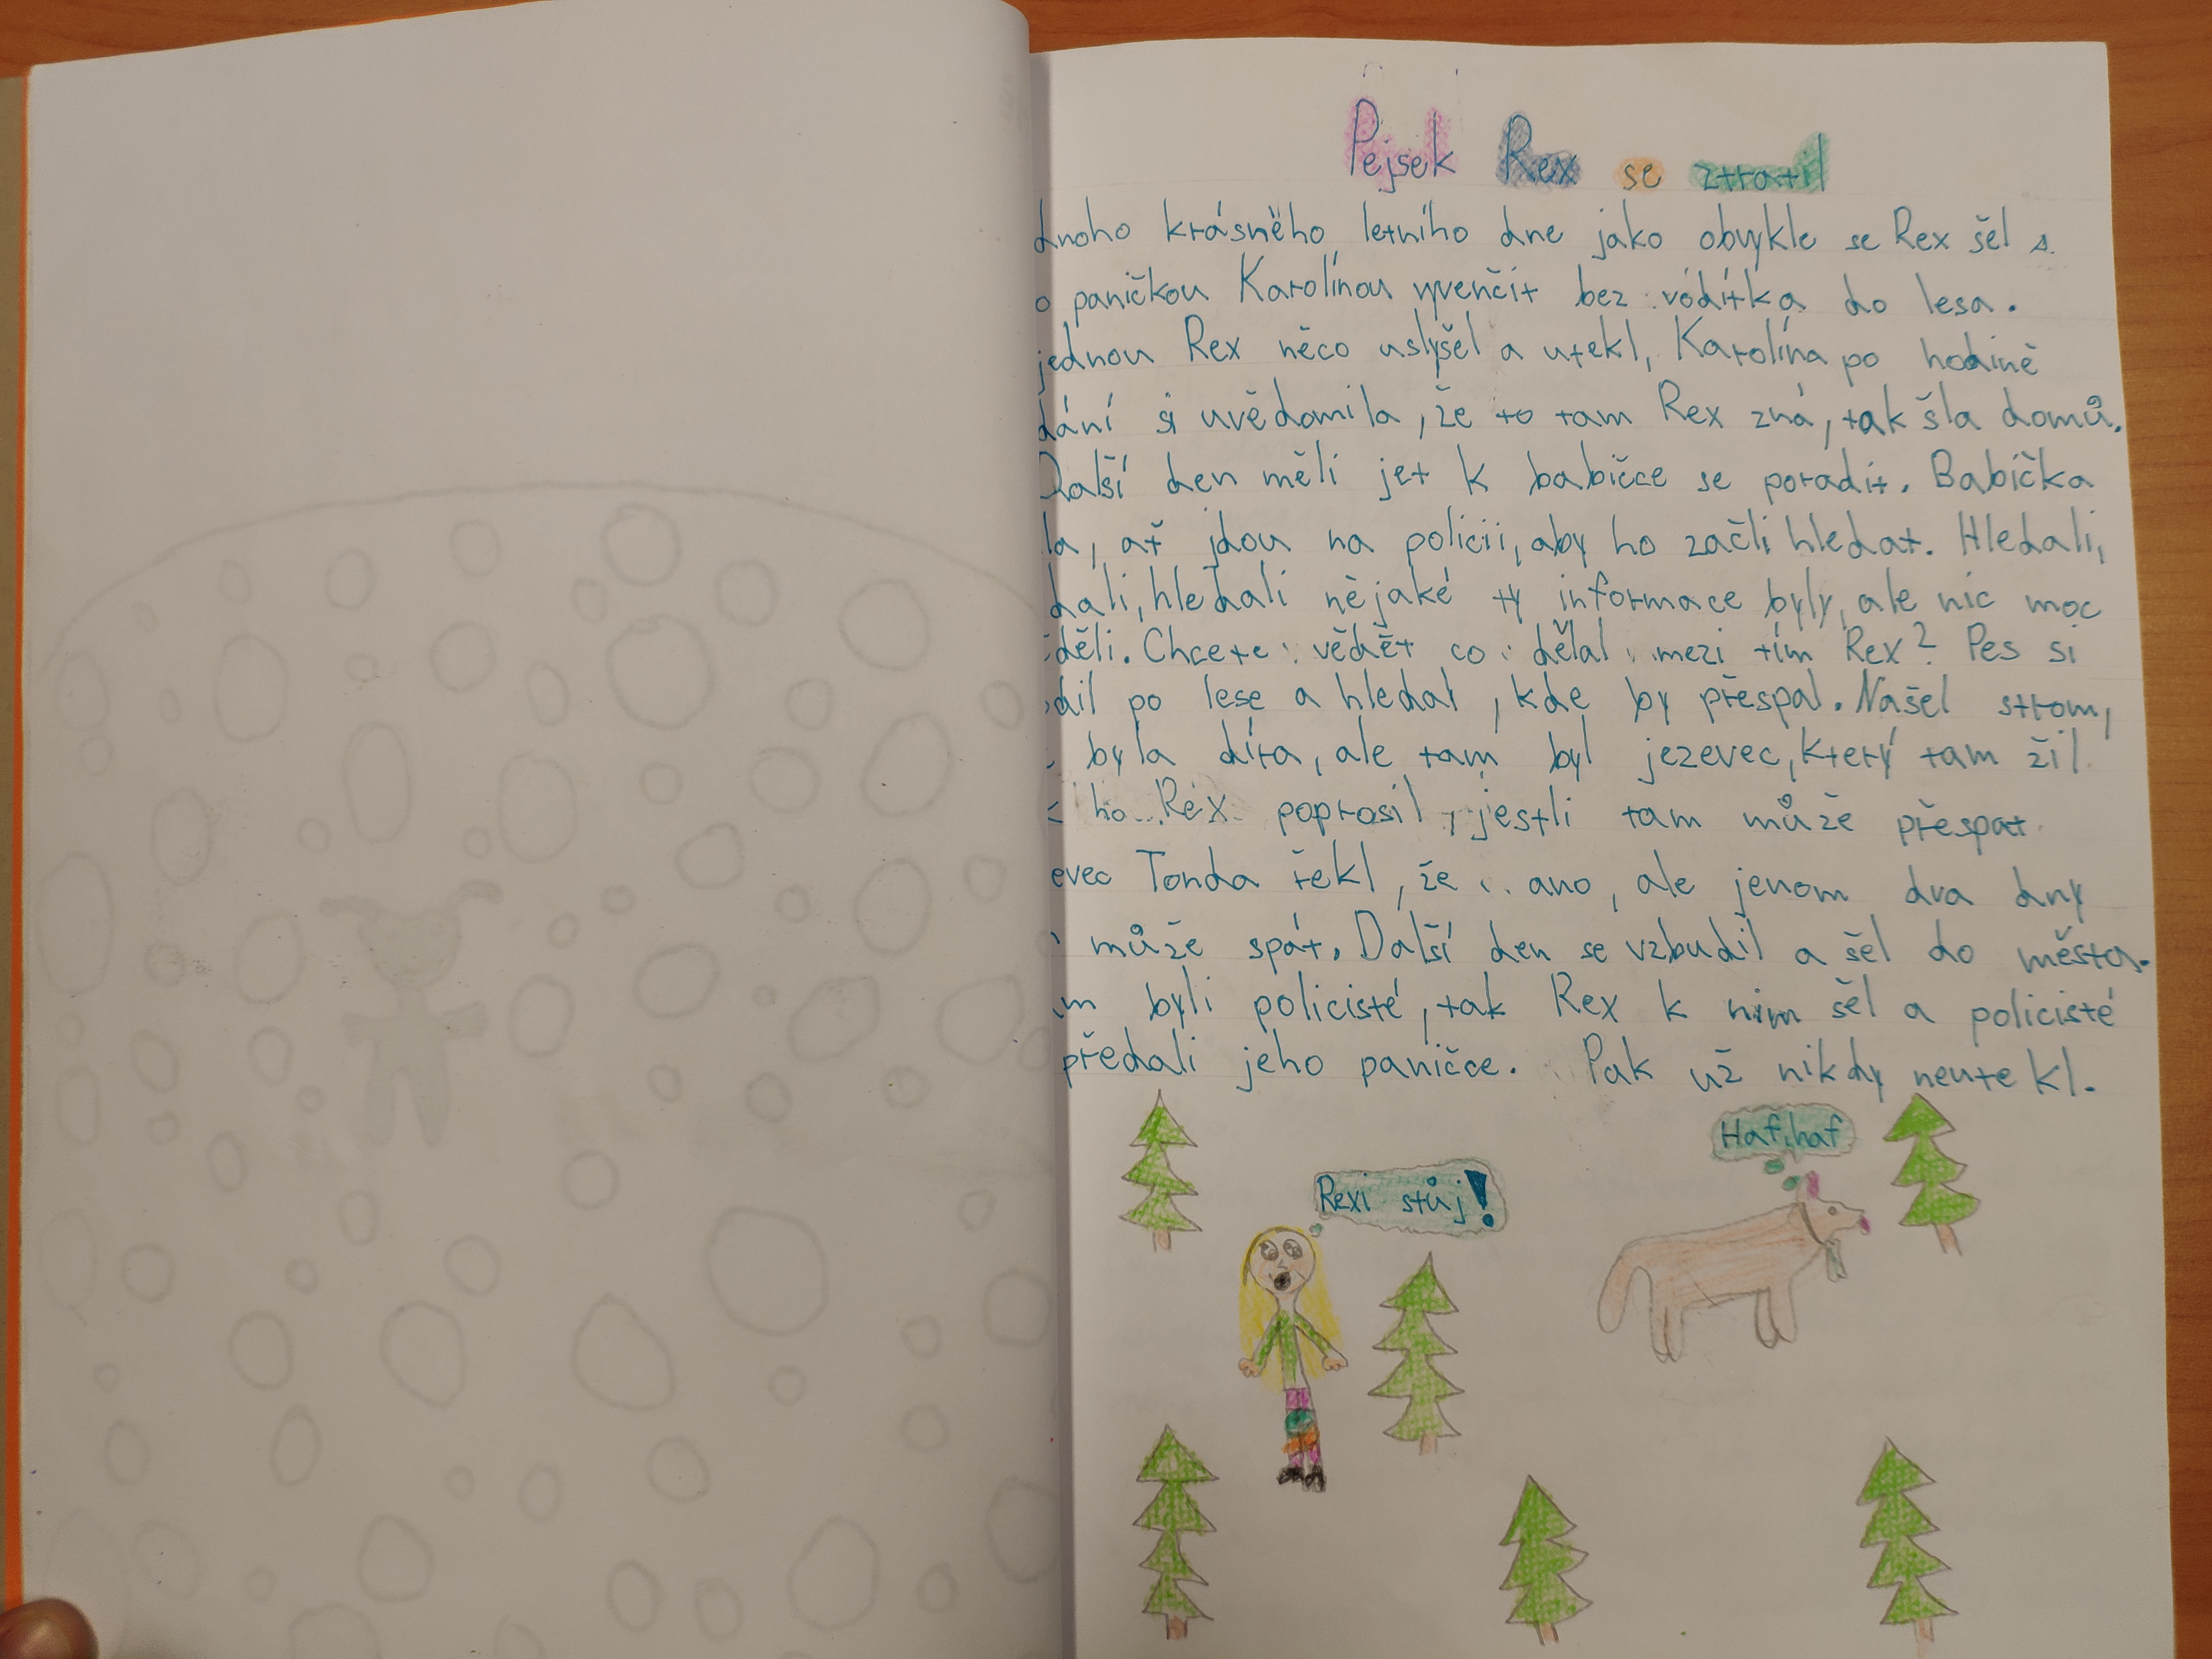 Pejsek Rex se ztratil
dnoho krásného letního dne jako obvykle se Rex šel s
o paničkou Karolínou vyvenčit bez vodítka do lesa.
jednou Rex něco uslyšel a utekl, Karolína po hodině
dání si uvědomila, že to tam Rex zná, tak šla domů.
Další den měli jet k babičce se poradit. Babička
la, ať jdou na policii, aby ho začli hledat. Hledali,
dali, hledali nějaké ty informace byly, ale nic moc
děli. Chcete vědět co dělal mezi tím Rex? Pes si
dil po lese a hledal, kde by přespal. Našel strom,
byla díra, ale tam byl jezevec, který tam žil
ho Rex poprosil, jestli tam může přespat
evec Tonda řekl, že ano, ale jenom dva dny
může spát. Další den se vzbudil a šel do města.
m byli policisté, tak Rex k nim šel a policisté
předali jeho paničce. Pak už nikdy neutekl.
Haf, haf
Rexi stůj!